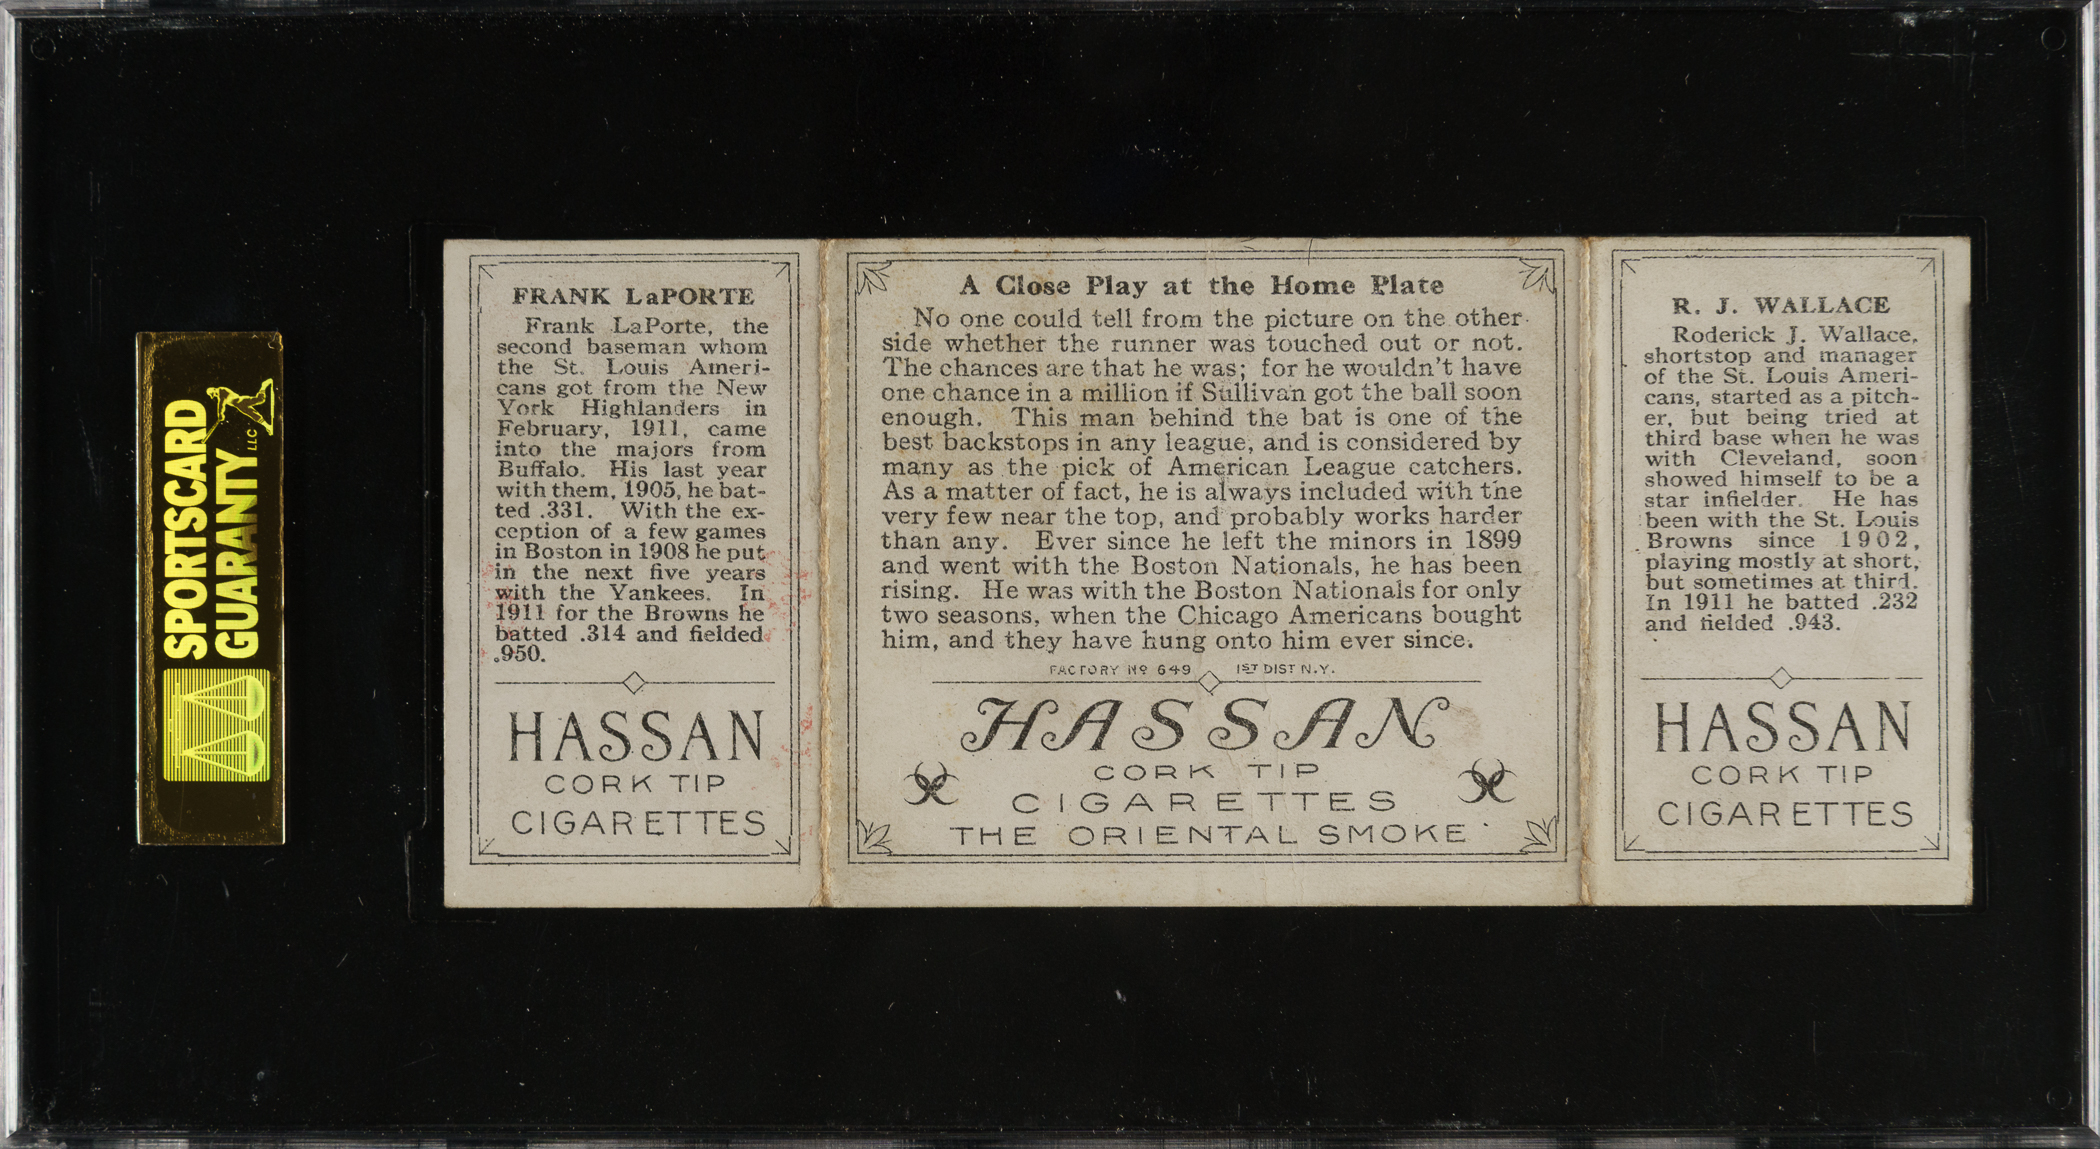 SPORTSCARD
GUARANTY LLC
FRANK LaPORTE
Frank LaPorte, the
second baseman whom
the St. Louis Ameri-
cans got from the New
York Highlanders in
February, 1911, came
into the majors from
Buffalo. His last year
with them, 1905, he bat-
ted .331. With the ex-
ception of a few games
in Boston in 1908 he put
in the next five years
with the Yankees. In
1911 for the Browns he
batted .314 and fielded
.950.
HASSAN
CORK TIP
CIGARETTES
A Close Play at the Home Plate
No one could tell from the picture on the other
side whether the runner was touched out or not.
The chances are that he was; for he wouldn't have
one chance in a million if Sullivan got the ball soon
enough. This man behind the bat is one of the
best backstops in any league, and is considered by
many as the pick of American League catchers.
As a matter of fact, he is always included with the
very few near the top, and probably works harder
than any. Ever since he left the minors in 1899
and went with the Boston Nationals, he has been
rising. He was with the Boston Nationals for only
two seasons, when the Chicago Americans bought
him, and they have hung onto him ever since.
FACTORY Nº 649 1ST DIST N.Y.
HASSAN
CORK TIP
CIGARETTES
THE ORIENTAL SMOKE
R. J. WALLACE
Roderick J. Wallace,
shortstop and manager
of the St. Louis Ameri-
cans, started as a pitch-
er, but being tried at
third base when he was
with Cleveland, soon
showed himself to be a
star infielder. He has
been with the St. Louis
Browns since 1902,
playing mostly at short,
but sometimes at third.
In 1911 he batted .232
and fielded .943.
HASSAN
CORK TIP
CIGARETTES